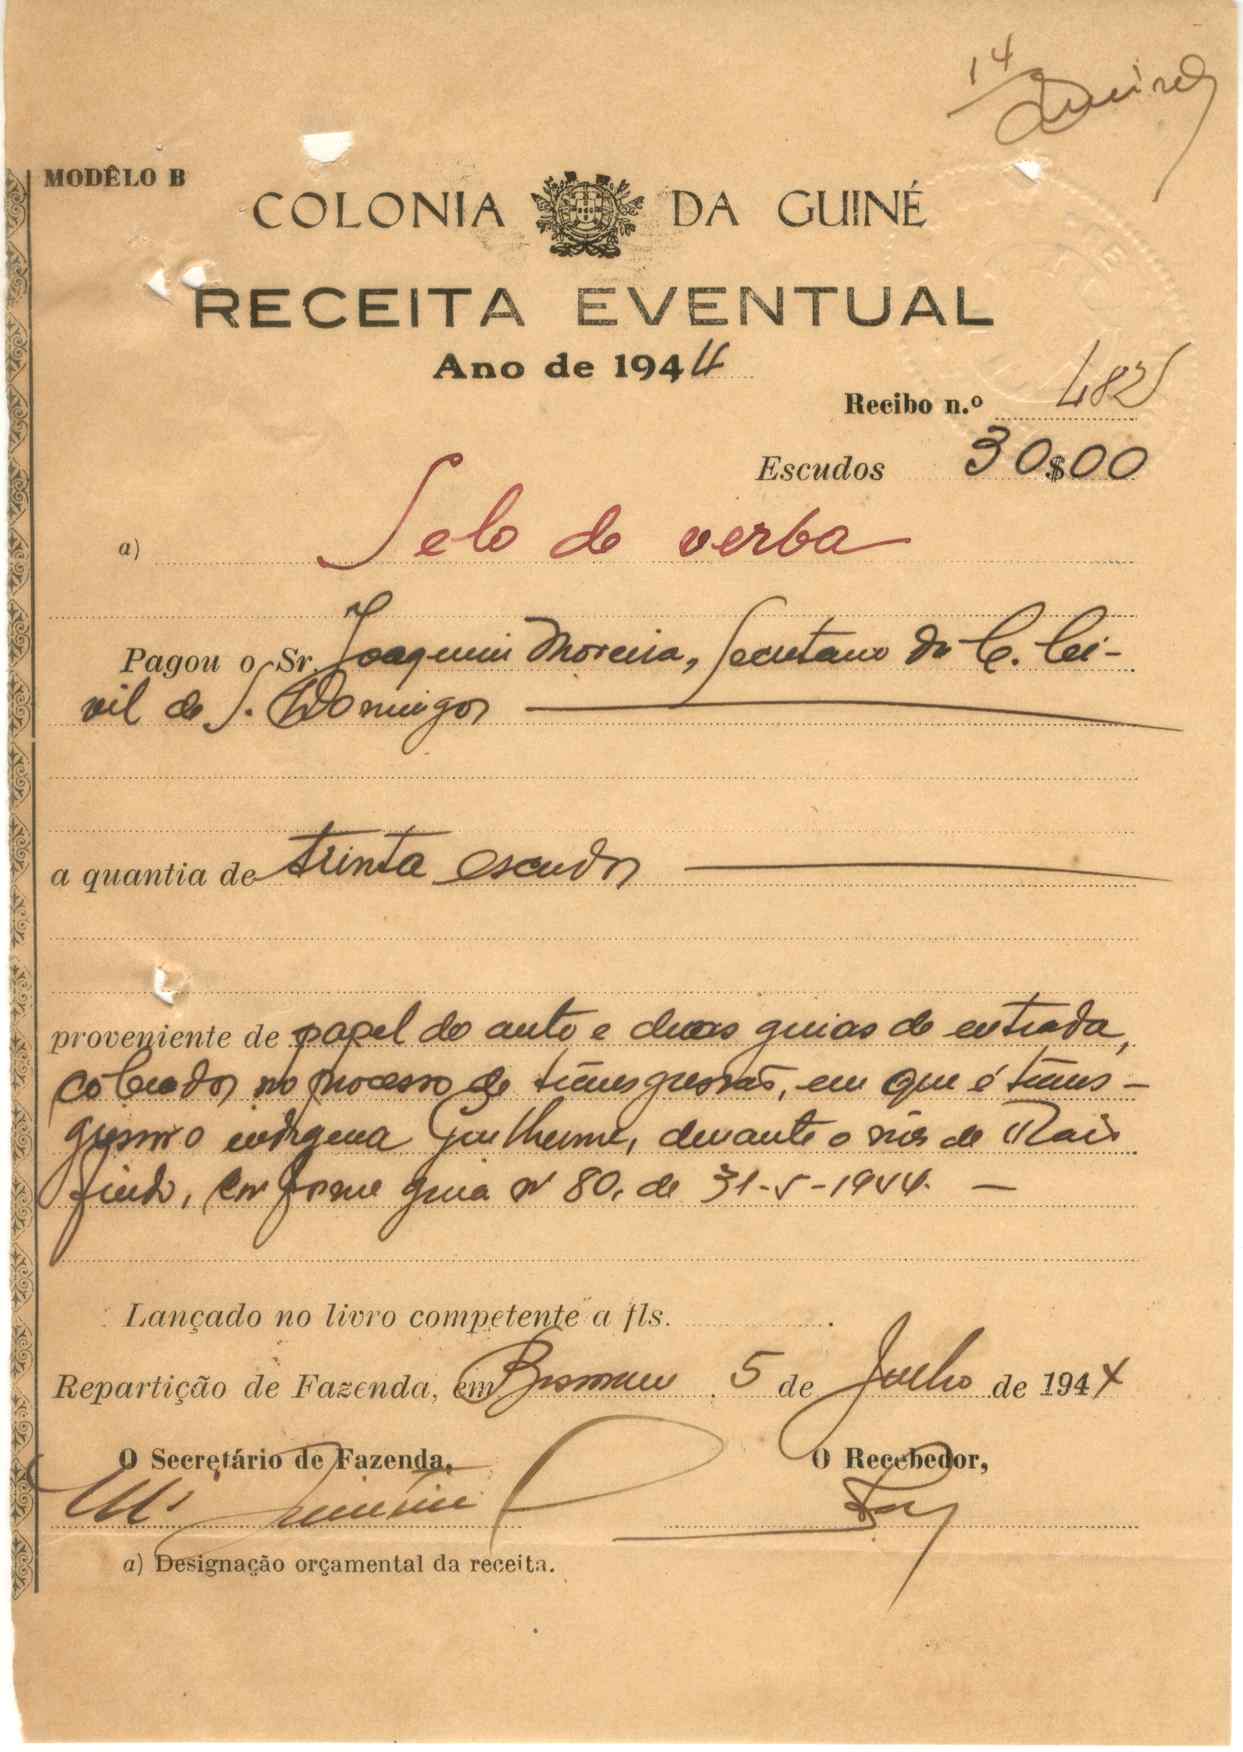 14
MODÊLO B
COLONIA DA GUINÉ
RECEITA EVENTUAL
Ano de 1944
Recibo n.º 482
Escudos 30$00
a) Selo de verba
Pagou o Sr. Joaquim Moreira, Secretario da C. Ci-
vil de S. Domingos
a quantia de trinta escudos
proveniente de papel do auto e duas guias de entrada,
cobrados no processo de transgressão, em que é trans-
gressor o indigena Guilherme, durante o mês de Maio
findo, conforme guia nº 80, de 31-5-1944.
Lançado no livro competente a fls.
Repartição de Fazenda, em 5 de Julho de 1944
O Secretário de Fazenda,
O Recebedor,
a) Designação orçamental da receita.